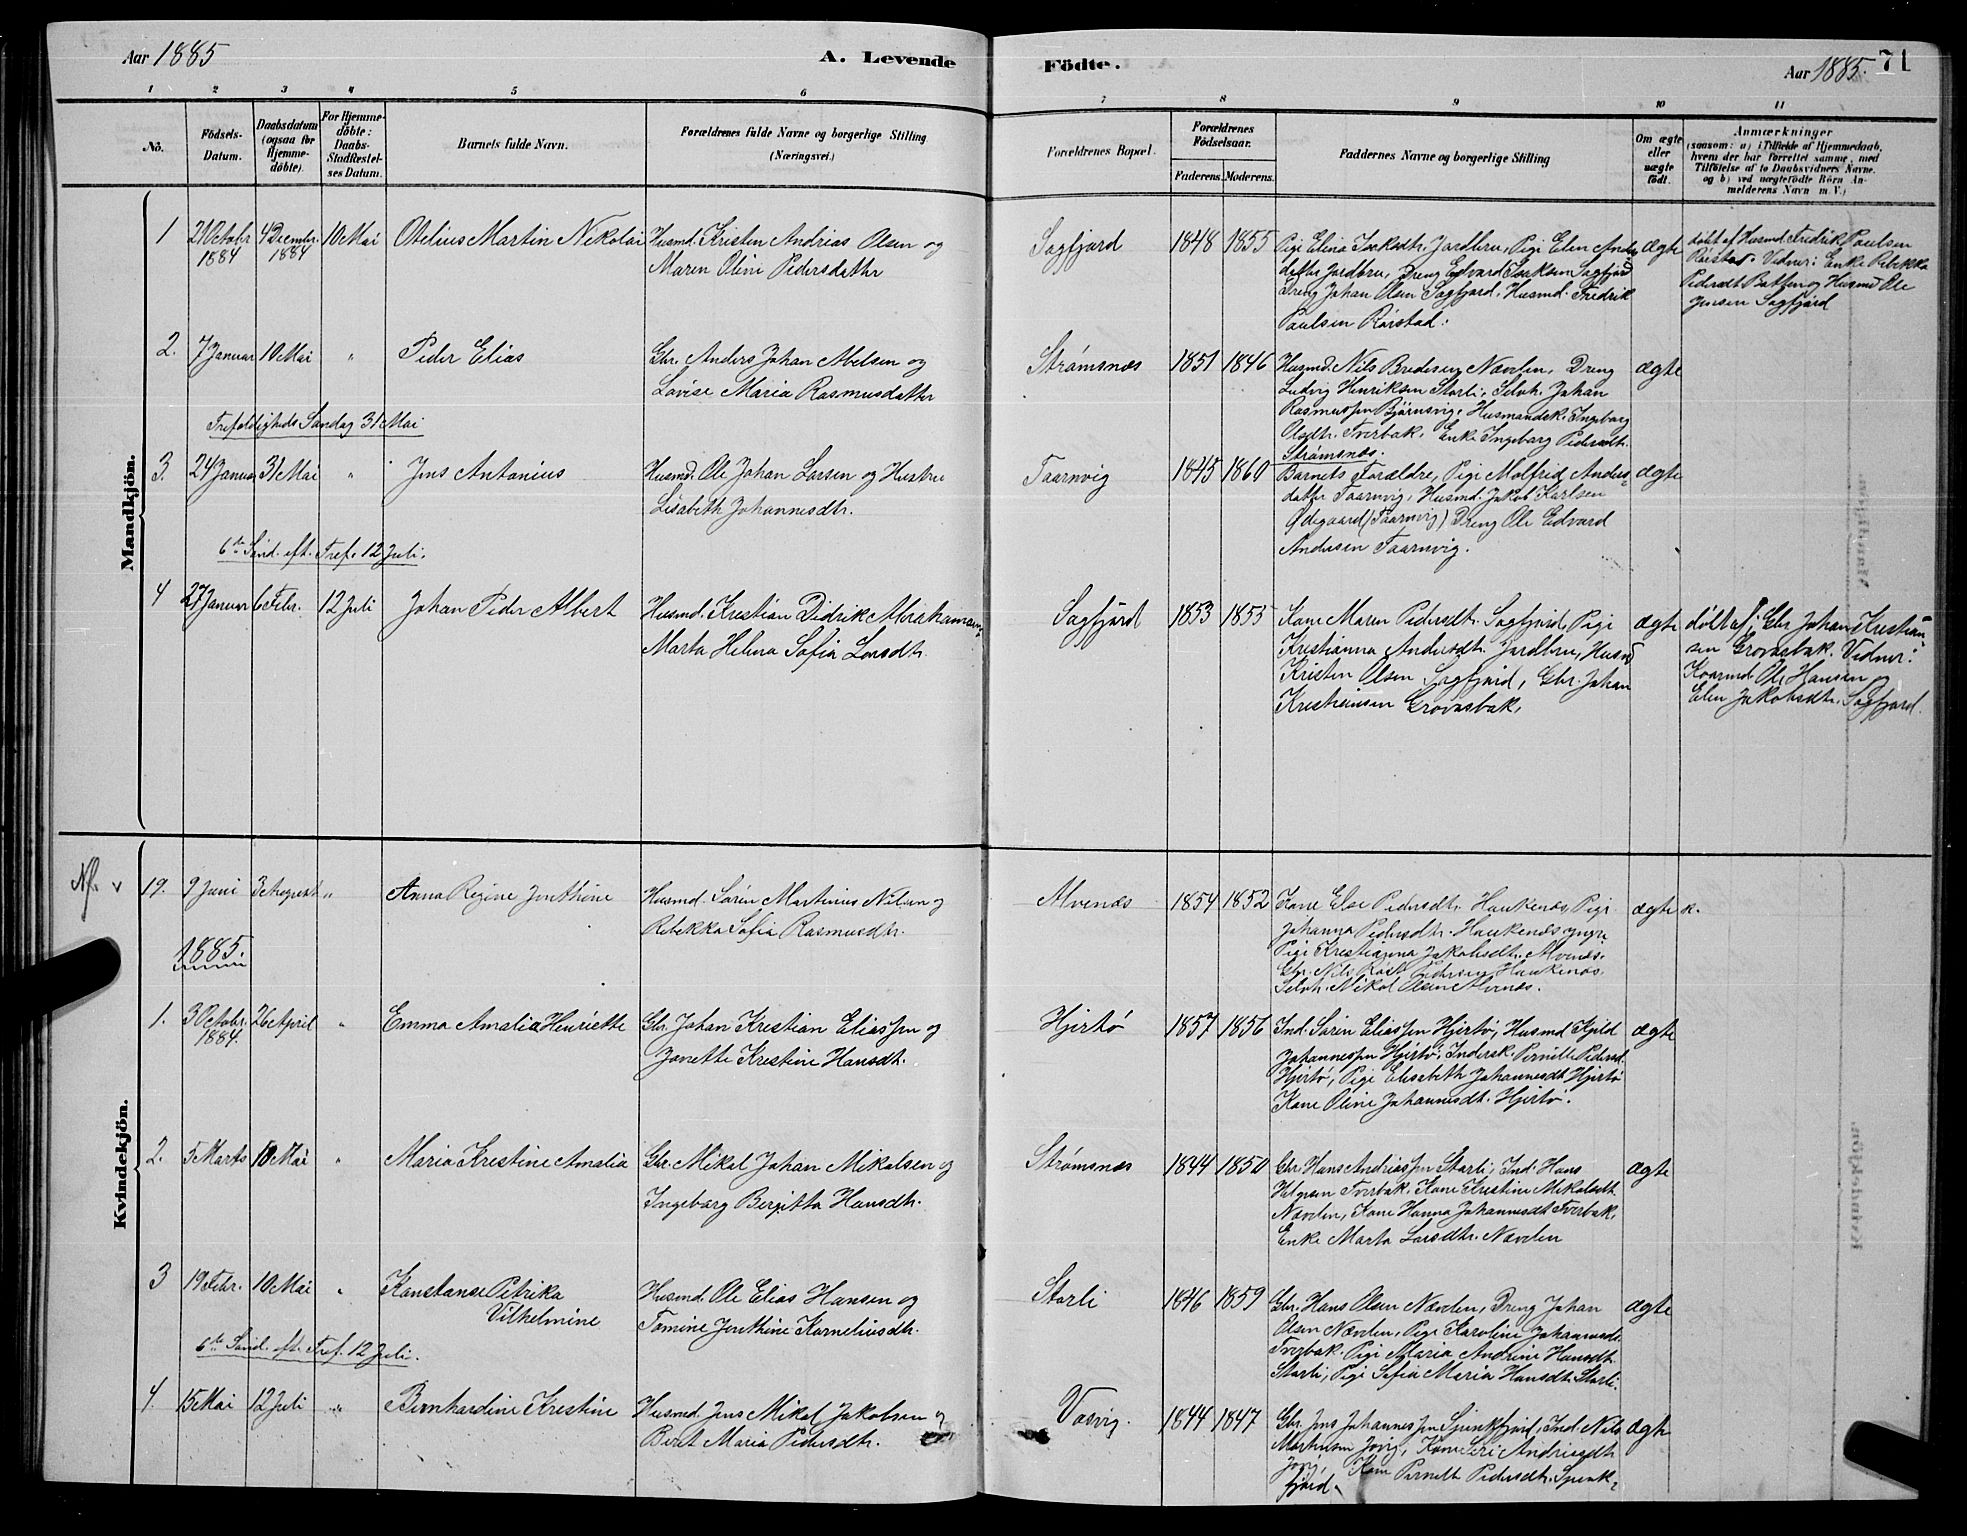 Aar 1885
A. Levende
Födte.
Aar 1885.
71
1 2 3 4 5 6 7 8 9 10 11
No.
Födsels-
Datum.
Daabsdatum
(ogsaa for
Hjemme-
döbte).
For Hjemme-
döbte:
Daabs-
Stadfæstel-
ses Datum.
Barnets fulde Navn.
Forældrenes fulde Navne og borgerlige Stilling
(Næringsvei.)
Forældrenes Bopæl.
Forældrenes
Födselsaar.
Faderens. Moderens.
Faddernes Navne og borgerlige Stilling
Om ægte
eller
uægte
födt.
Anmærkninger
(saasom: a) i Tilfælde af Hjemmedaab,
hvem der har forrettet samme, med
Tilföielse af to Daabsvidners Navne,
og b) ved uægtefödte Börn An-
melderens Navn m. V.)
Mandkjön.
1 21 Octobr 4 Decembr. 10 Mai Otelius Martin Nikolai Husmd. Kristen Andrias Olsen og
1884 1884 Maren Oline Pedersdatter
Sagfjord 1848 1855 Pige Elina Isaksdtr. Jordbru, Pige Elen Anders
datter Jordbru, Dreng Edvard Isaksen Sagfjord
Dreng Johan Olsen Sagfjord, Husmd. Fredrik
Paulsen Rörstad.
ægte
döbt af Husmd Fredrik Paulsen
Rörstad. Vidner: Enke Rebekka
Pedersdt. Batten og Husmd Ole
Jensen Sagfjord
2. 7 Januar 10 Mai " Peder Elias Gbr. Anders Johan Abelsen og
Lovise Maria Rasmusdatter
Strömsnæs 1851 1846 Husmd. Nils Bredesen Nævelen, Dreng
Ludvig Henriksen Storli, Selvh. Johan
Rasmussen Björnsvig, Husmandsk. Ingeborg
Olsdtr. Tverbak, Enke Ingeborg Pedersdtr.
Strömsnæs.
ægte
Trefoldigheds Söndag 31 Mai
3. 24 Januar 31 Mai " Jens Antonius Husmd. Ole Johan Larsen og Hustru
Lisabeth Johannesdtr.
Taarnvig 1845 1860 Barnets Forældre, Pige Molfrid Anders-
datter Taarnvig, Husmd. Jakob Karlsen
Ödegaard (Taarnvig) Dreng Ole Edvard
Andersen Taarnvig.
ægte
6te Sönd. eft. Tref. 12 Juli.
4 27 Januar 6 Febr. 12 Juli Johan Peder Albert Husmd. Kristian Didrik Abrahamsen og
Marta Helena Sofia Larsdtr.
Sagfjord 1853 1855 Kone Maren Pedersdtr. Sagfjord, Pige
Kristianna Andersdtr. Jordbru, Husmd
Kristen Olsen Sagfjord, Gbr. Johan
Kristiansen Grovasbak.
ægte
döbt af: Gbr Johan Kristian-
sen Grovasbak. Vidner:
Kaarmd. Ole Hansen og
Elen Jakobsdtr. Sagfjord.
Kvindekjön.
Nf. v 19. 9 Juni 3 August " Anna Regine Jenthine Husmd. Sören Martinus Nilsen og
Rebekka Sofia Rasmusdtr.
Alvenæs 1854 1852 Kone Else Pedersdtr. Haukenæs, Pige
Johanna Pedersdtr. Haukenæs yngr.
Pige Kristianna Jakobsdtr. Alvenæs.
Gbr. Nils Röst Pedersen Haukenæs.
Selvh. Nikol Olsen Alvenæs.
ægte K.
1885.
1. 3 Octobr. 26 April " Emma Amalia Henriette Gbr. Johan Kristian Eliassen og
1884. Janette Kristine Hansdtr.
Hjertö 1857 1856 Ind. Sören Eliassen Hjertö, Husmd Kjeld
Johannessen Hjertö, Indersk. Pernille Pedersd.
Hjertö, Pige Elisabeth Johannesdt. Hjertö
Kone Oline Johannesdt. Hjertö.
ægte
2. 5 Marts 10 Mai " Maria Kristine Amalia Gbr. Mikal Johan Mikalsen og
Ingeborg Birgitta Hansdtr.
Strömsnæs 1844 1850 Gbr. Hans Andriassen Storli, Ind. Hans
Helgesen Tverbak, Kone Kristine Mikalsdtr.
Nævelen, Kone Hanna Johannesdt. Tverbak,
Enke Marta Larsdtr. Nævelen
ægte
3 19 Febr. 10 Mai " Konstanse Petrika
Vilhelmine
Husmd. Ole Elias Hansen og
Tomine Jenthine Korneliusdtr.
Storli 1846 1859 Gbr. Hans Olsen Nævelen, Dreng Johan
Olsen Nævelen, Pige Karoline Johannesdtr.
Tverbak, Pige Maria Andrine Hansdtr.
Storli, Pige Sofia Maria Hansdt. Storli.
ægte
6te Sönd. eft. Tref. 12 Juli.
4. 15 Mai 12 Juli " Bernhardine Kristine Husmd. Jens Mikal Jakobsen og
Beret Maria Pedersdtr.
Vasvig. 1844 1847 Gbr. Jens Johannessen Spænkfjord, Ind. Nils
Martinsen Jövig, Kone Siri Andriasdtr.
Jövig, Kone Pernille Pedersdtr. Spænk-
fjord.
ægte